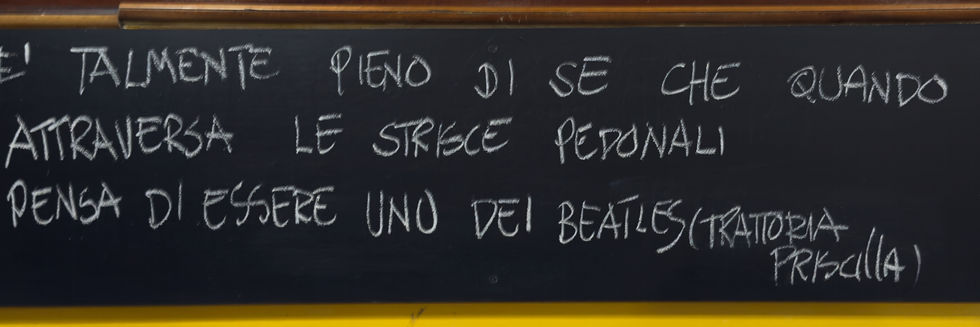 E' TALMENTE PIENO DI SE CHE QUANDO
ATTRAVERSA LE STRISCE PEDONALI
PENSA DI ESSERE UNO DEI BEATLES (TRATTORIA
PRISCILLA)